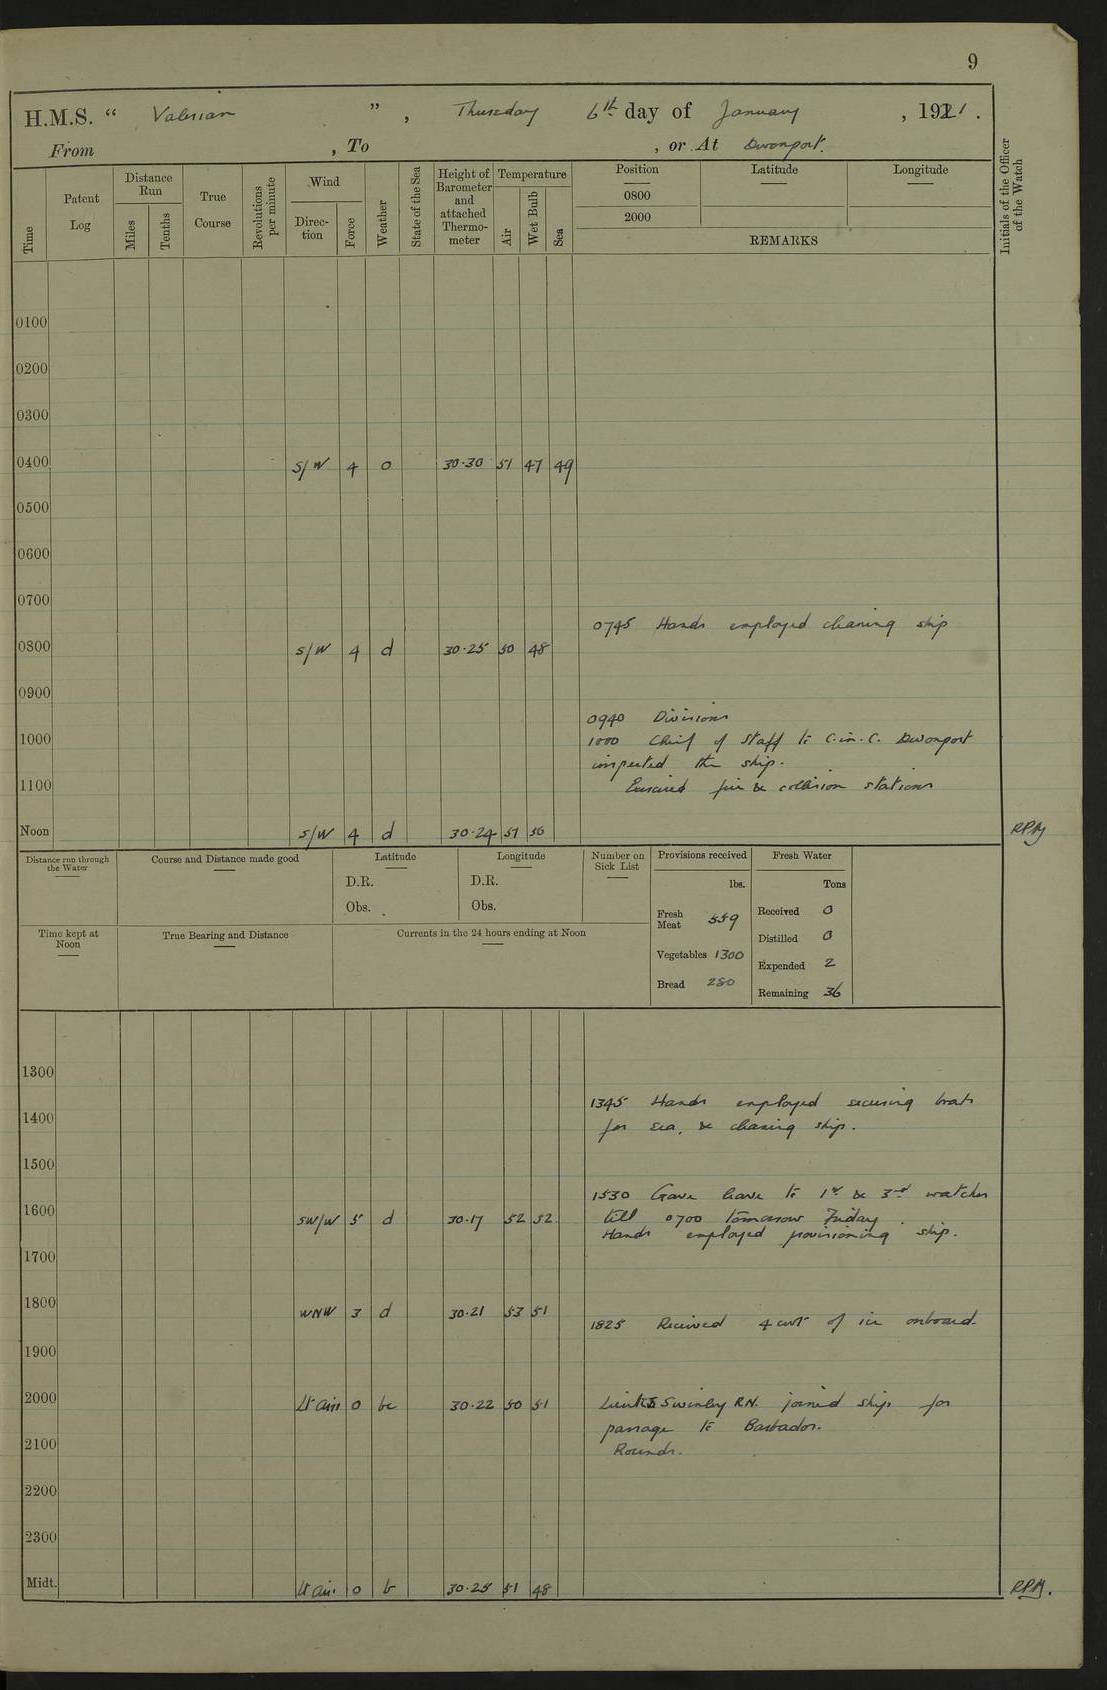 9
H.M.S. " Valerian ", Thursday 6th day of January, 1921.
From , To , or At Devonport.
Time
Patent Log
Distance Run
Miles
Tenths
True Course
Revolutions per minute
Wind
Direction
Force
Weather
State of the Sea
Height of Barometer and attached Thermometer
Temperature
Air
Wet Bulb
Sea
Position
0800
2000
Latitude
Longitude
REMARKS
Initials of the Officer of the Watch
0100
0200
0300
0400 S/W 4 o 30·30 51 47 49
0500
0600
0700
0745 Hands employed cleaning ship
0800 S/W 4 d 30·25 50 48
0900
0940 Divisions
1000 1000 Chief of Staff to C.in.C. Devonport
inspected the ship.
1100 Exercised fire & collision stations
Noon S/W 4 d 30·24 57 56 RPM
Distance run through the Water
Course and Distance made good
Latitude
D.R.
Obs.
Longitude
D.R.
Obs.
Number on Sick List
Provisions received
lbs.
Fresh Meat 559
Vegetables 1300
Bread 280
Fresh Water
Tons
Received 0
Distilled 0
Expended 2
Remaining 36
Time kept at Noon
True Bearing and Distance
Currents in the 24 hours ending at Noon
1300
1345 Hands employed securing boats
1400 for sea, & cleaning ship.
1500
1530 Gave leave to 1st & 3rd watches
1600 SW/W 5 d 30·17 52 52 till 0700 tomorrow Friday.
Hands employed provisioning ship.
1700
1800 WNW 3 d 30·21 53 51
1825 Received 4 cwt of ice onboard.
1900
2000 Lt air 0 bc 30·22 50 51 Swinley R.N. joined ship for
passage to Barbados.
2100 Rounds.
2200
2300
Midt. Lt air 0 b 30·25 51 48 RPM.